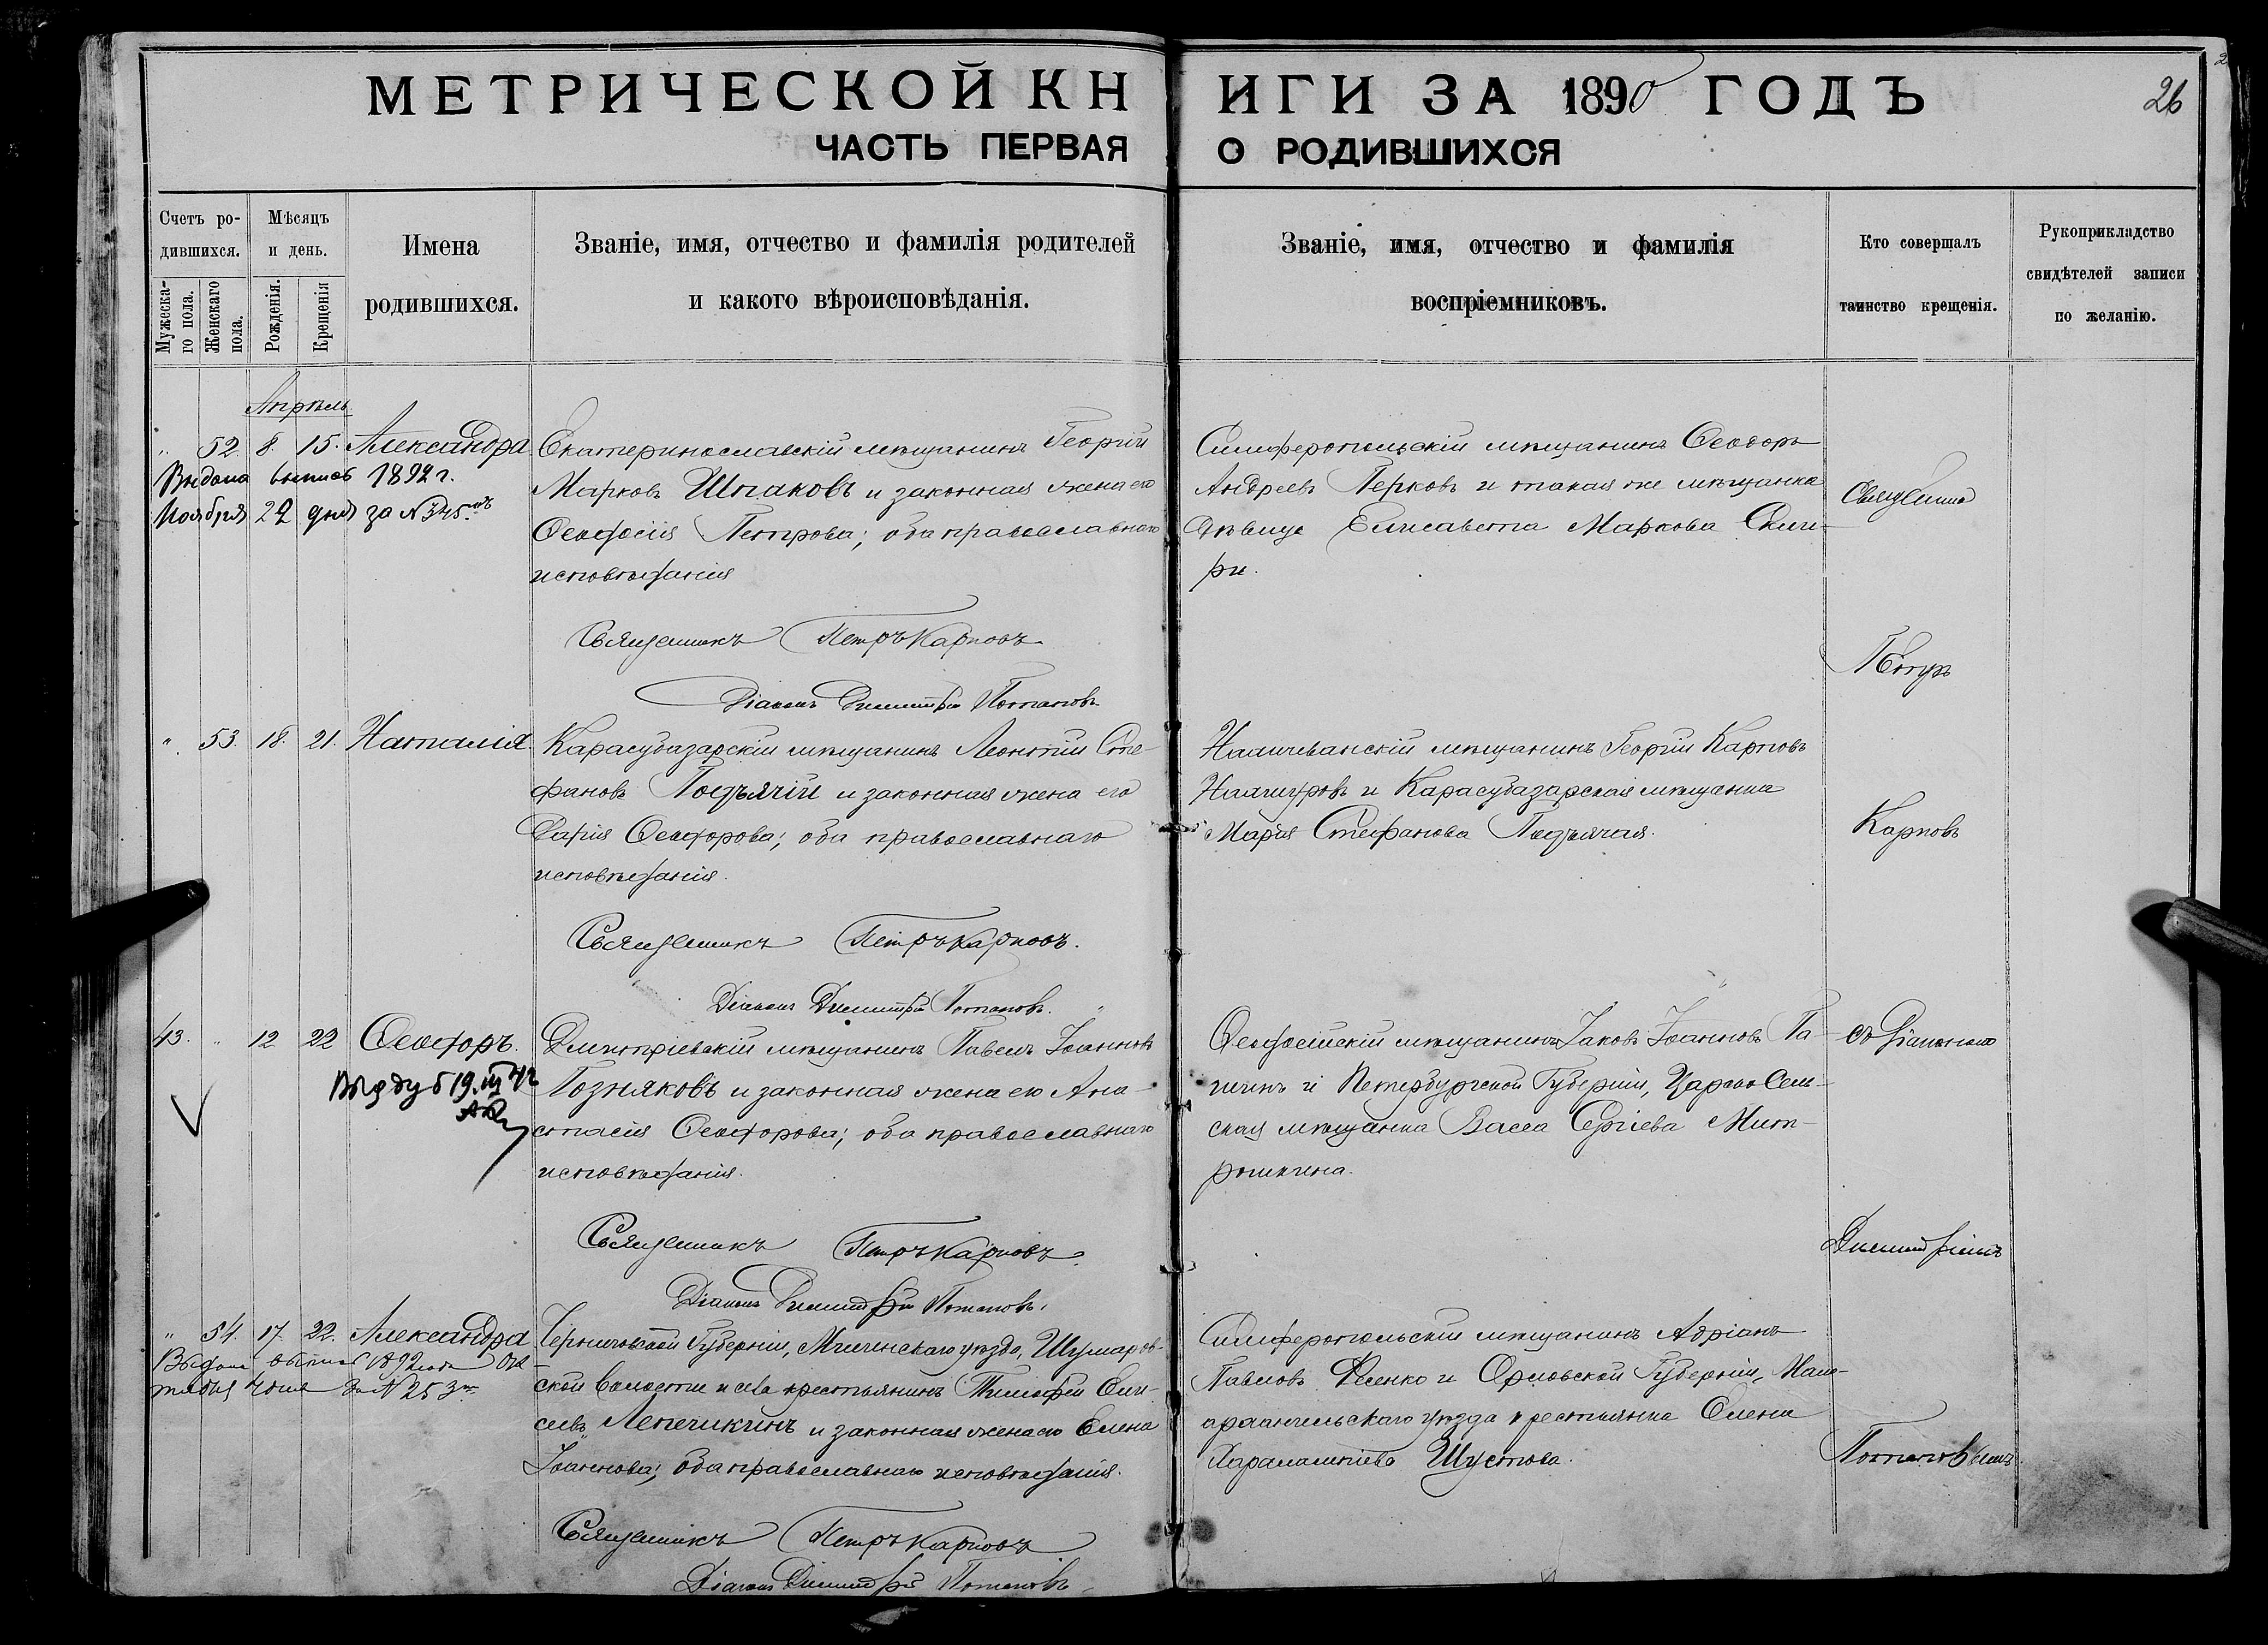 МЕТРИЧЕСКОЙ КНИГИ ЗА 1890 ГОДЪ
26
ЧАСТЬ ПЕРВАЯ О РОДИВШИХСЯ
Счетъ ро-
дившихся.
Мужеска-
го пола.
Женскаго
пола.
Мѣсяцъ
и день.
Рожденія.
Крещенія
Имена
родившихся.
Званіе, имя, отчество и фамилія родителей
и какого вѣроисповѣданія.
Званіе, имя, отчество и фамилія
воспріемниковъ.
Кто совершалъ
таинство крещенія.
Рукоприкладство
свидѣтелей записи
по желанію.
Апрѣль
" 52. 8. 15. Александра
Выдана выпись 1892 г.
Ноября 22 дня за №345.мъ
Екатеринославскій мѣщанинъ Георгій
Марковъ Шпаковъ и законная жена его
Ѳеодосія Петрова; оба православнаго
исповѣданія
Священникъ Петръ Карповъ
Діаконъ Димитрій Потаповъ
Симферопольскій мѣщанинъ Ѳеодоръ
Андреевъ Перковъ и такая же мѣщанка
дѣвица Елисавета Маркова Скли-
ри.
" 53. 18. 21. Наталія
Карасубазарскій мѣщанинъ Леонтій Сте-
фановъ Подъячій и законная жена его
Дарія Ѳеодорова; оба православнаго
исповѣданія.
Священникъ Петръ Карповъ.
Діаконъ Димитрій Потаповъ.
Нахичеванскій мѣщанинъ Георгій Карповъ
и Карасубазарская мѣщанка
Марія Стефанова Подъячая.
43. " 12 22 Ѳеодоръ.
19.III 42
Дмитріевскій мѣщанинъ Павелъ Іоанновъ
Позняковъ и законная жена его Ана-
стасія Ѳеодорова; оба православнаго
исповѣданія.
Священникъ Петръ Карповъ.
Діаконъ Димитрій Потаповъ.
Ѳеодосійскій мѣщанинъ Іаковъ Іоанновъ Па-
и Петербургской Губерніи, Царско Сель-
ская мѣщанка Васса Сергіева Мит-
рошкина.
" 54. 17. 22. Александра
Выдана выпись 1892 года Ок-
тября за №253
Черниговской Губерніи, Мглинскаго уѣзда, Шумаров-
ской волости и села крестьянинъ Тимофей Ели-
сеевъ Лепешкинъ и законная жена его Елена
Іоаннова; оба православнаго исповѣданія.
Священникъ Петръ Карповъ
Діаконъ Димитрій Потаповъ
Симферопольскій мѣщанинъ Адріанъ
Павловъ и Орловской Губерніи, Мало-
архангельскаго уѣзда крестьянка Елена
Харалампіева Шустова.
Священникъ
Петръ
Карповъ
съ Діакономъ
Димитріемъ
Потаповымъ